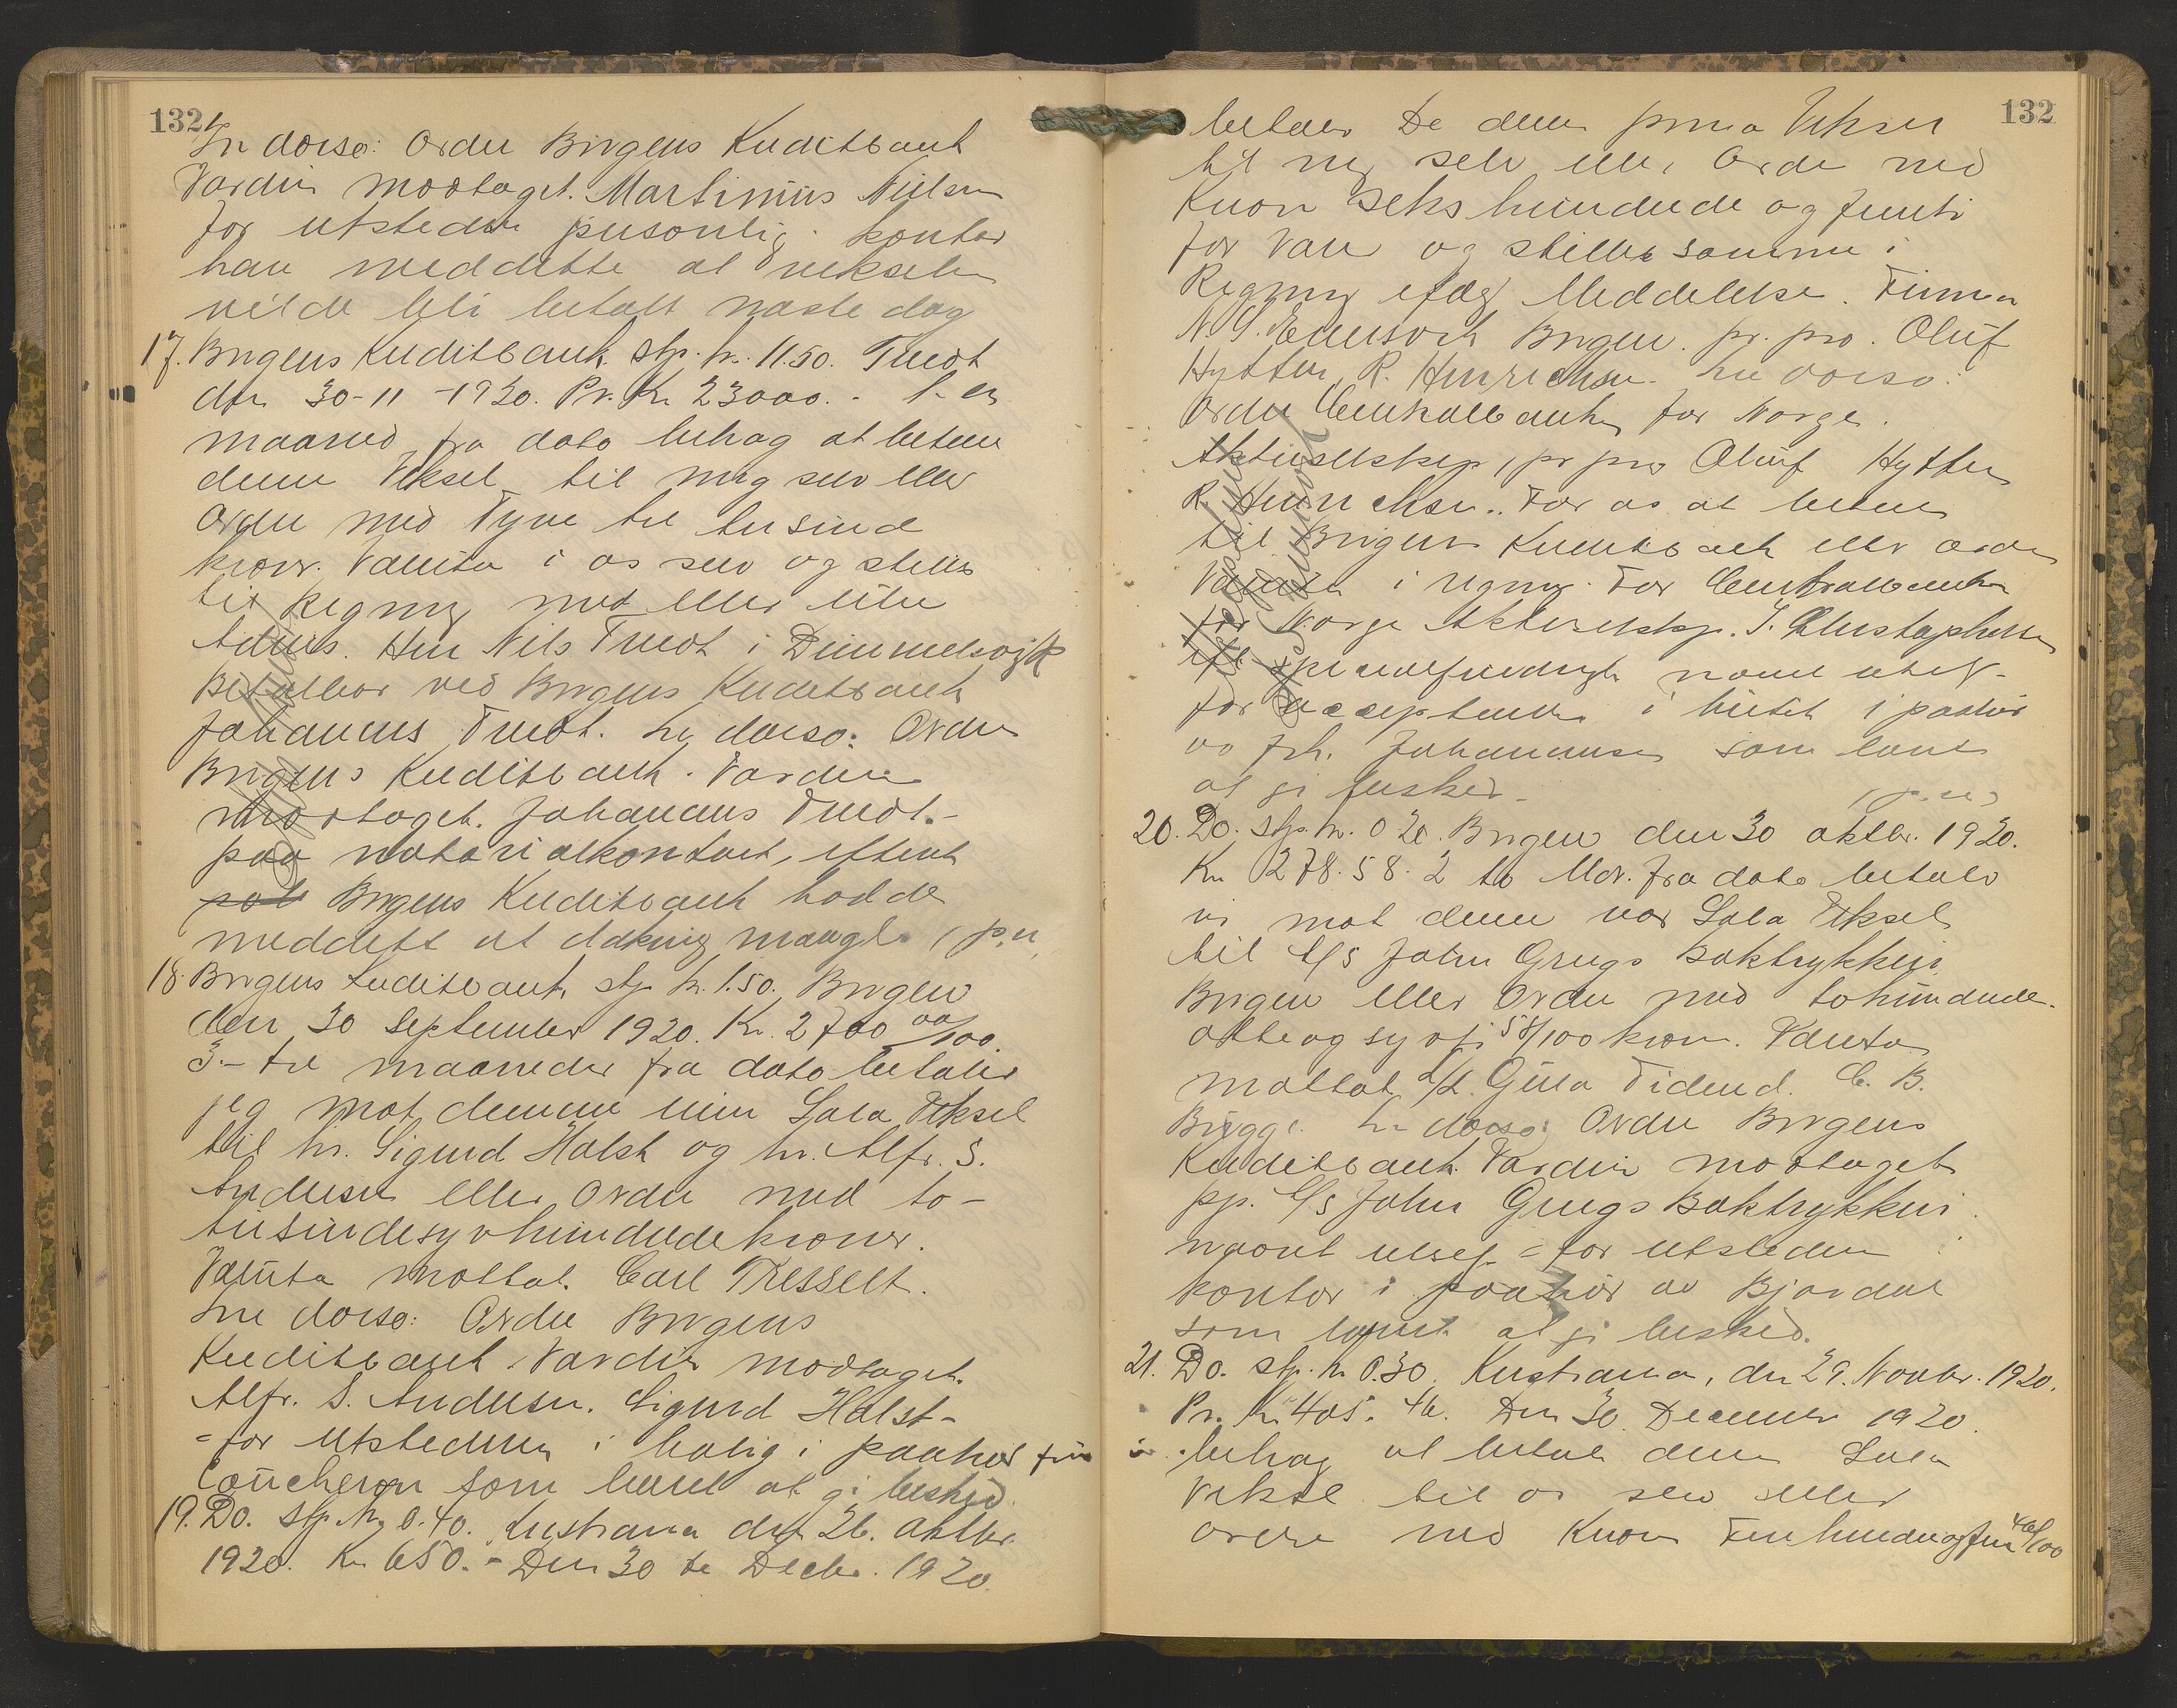 132
In dorso: Ordre Bergens Kreditbank
Værdien modtaget. Martinius Nielsen
for utstederen personlig. kontor
han meddelte at vekselen
vilde bli betalt næste dag
17. Bergens Kreditbank. stp. kr. 11.50. Tvedt
den 30-11-1920. Pr. Kr. 23000.- 1- en
maaned fra dato behag at betale
denne Veksel til mig selv eller
Ordre med Tyve tre tusind
kroner. Valuta i os selv og stilles
til Regning med eller uten
Advis. Herr Nils Tvedt i
Betalbar ved Bergens Kreditbank
Johannes Tvedt. In dorso: Ordre
Bergens Kreditbank. Værdien
modtaget. Johannes Tvedt.-
paa notarialkontoret, efterat
Bergens Kreditbank hadde
meddelt at dækning mangler (p.n.
18. Bergens Kreditbank stp. kr. 1.50. Bergen
den 30 September 1920. Kr. 2700 00/100.
3.- tre maaneder fra dato betaler
jeg mot denne min Sola Veksel
til hr. Sigurd Halst og hr. Alfr. S.
Andersen eller Ordre med to-
tusindesyvhundrede kroner.
Valuta mottat. Carl Tresselt.
In dorso: Ordre Bergens
Kreditbank. Værdien modtaget.
Alfr. S. Andersen. Sigurd Halst-
=for utstederen i bolig i paahør fru
Coucheron som lovet at gi besked.
19. Do. stp. kr. 0.40. Kristiania den 26. Oktbr.
1920. Kr. 650.- Den 30 te Decbr. 1920
132
betaler De denne prima Veksel
til mig selv eller Ordre med
Kroner Seks hundrede og femti
for Varer og stilles samme i
Regning ifølge Meddelelse. Firma
Bergen. pr. pro. Oluf
Hytten R. Henrichsen. In dorso:
Ordre Centralbanken for Norge.
Aktieselskap, pr pro Oluf Hytten
R. Henrichsen. For os at betale
til Bergens Kreditbank eller ordre
Valuta i regning. For Centralbanken
for Norge Aktieselskap. J. Christophersen
efter specialfuldmagt navn utsl.
for acceptanten i butik i paahør
av frk. Johannessen som lovet
at gi besked.- (p.n.)
20. Do. stp. kr. 0 20. Bergen den 30 oktbr. 1920.
Kr. 278.58. 2 to Mdr. fra dato betaler
vi mot denne vor Sola Veksel
til A/S John Griegs Boktrykkeri
Bergen eller Ordre med tohundrede-
otteogsytti 58/100 kroner. Valuta
mottat a/l. Gula Tidend. C. B.
Brygge. In dorso: Ordre Bergens
Kreditbank. Værdien modtaget
pp. A/S John Griegs Boktrykkeri.
=for utstederen i
kontor i paahør av Bjordal
som lovet at gi besked.
21. Do. stp. kr 0.30. Kristiania, den 29. Novbr. 1920.
Pr. Kr. 405.46. Den 30. December 1920
behag at betale denne Sola
Veksel til os selv eller
ordre med Kroner Firehundreogfem 46/100